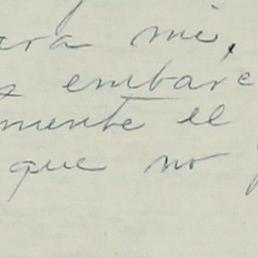 ara mi,
s embarc
mente el
que no